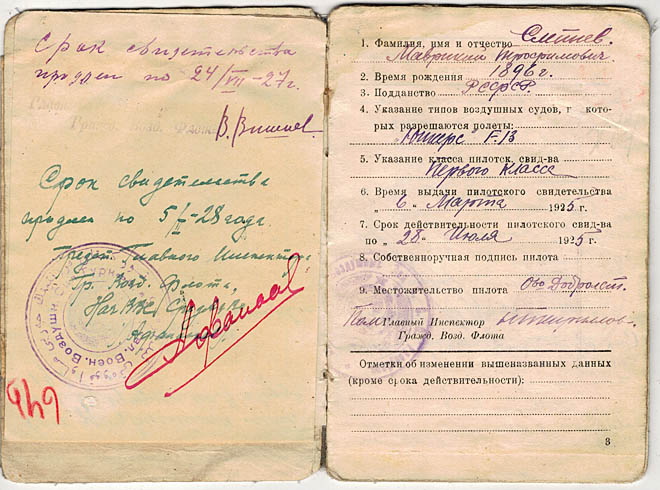 Срок свидетельства
продлен по 24/VII-27г.
Гражд. Возд. Флота
Срок свидетельства
продлен по 5/I-28 года.
Главного Инспек
Гр. Возд. Флота,
649
1. Фамилия, имя и отчество Слепнев.
Маврикий Трофимович.
2. Время рождения 1896 г.
3. Подданство РСФСР.
4. Указание типов воздушных судов, г кото-
рых разрешаются полеты:
"Юнкерс F-13
5. Указание класса пилотск. свид-ва
Первого класса
6. Время выдачи пилотского свидетельства
„ 6 „ Марта 1925 г.
7. Срок действительности пилотского свид-ва
по „ 28 " Июля 1925 г.
8. Собственноручная подпись пилота
9. Местожительство пилота О-во Добролет.
Пом Главный Инспектор
Гражд. Возд. Флота
Отметки об изменении вышеназванных данных
(кроме срока действительности):
3